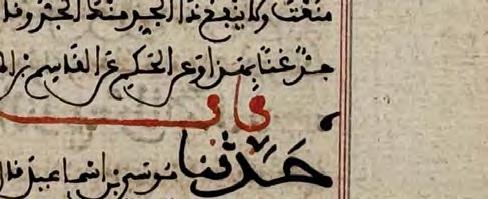 منعت ولا ينفع ذا الجد منك الجد وقال
جد غنا بهذا وعن الحكم عن القاسم بن
باب
حدثنا موسى بن اسماعيل قال